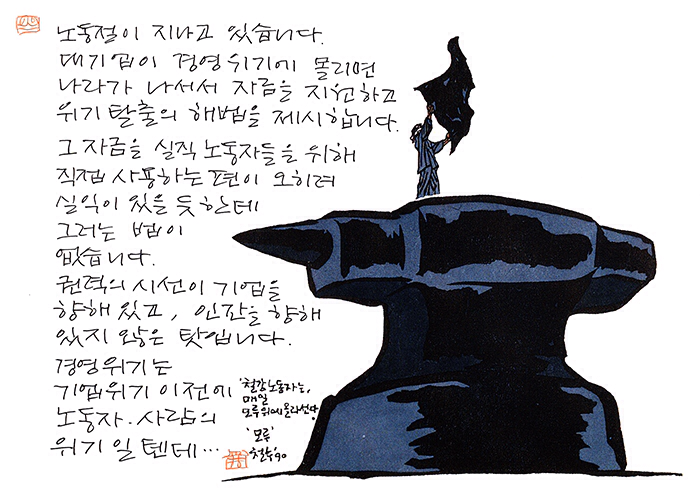 노동절이 지나고 있습니다.
대기업이 경영위기에 몰리면
나라가 나서서 자금을 지원하고
위기 탈출의 해법을 제시합니다.
그 자금을 실직 노동자들을 위해
직접 사용하는 편이 오히려
실익이 있을 듯한데
그러는 법이
없습니다.
권력의 시선이 기업을
향해 있고, 인간을 향해
있지 않은 탓입니다.
경영위기는
기업위기 이전에
노동자·사람의
위기일텐데…
'철강노동자는,
매일
모루위에 올라선다'
'모루'
철수 '90